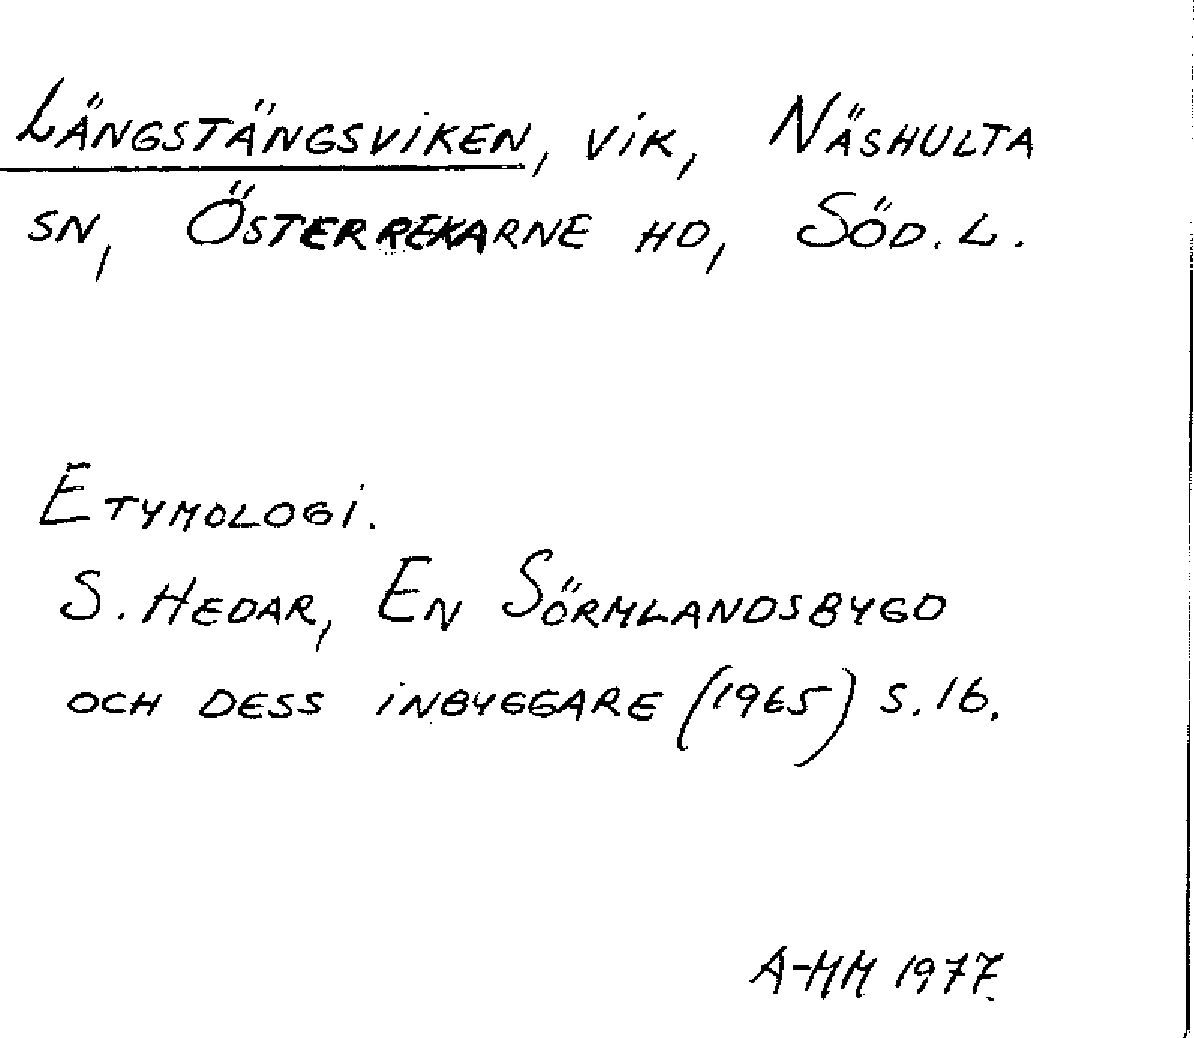 Längstängsviken, vik, Näshulta
sn, Österrekarne hd, Söd. L.
Etymologi.
S. Hedar, En Sörmlandsbygd
och dess inbyggare (1965) s. 16.
A-MM 1977.